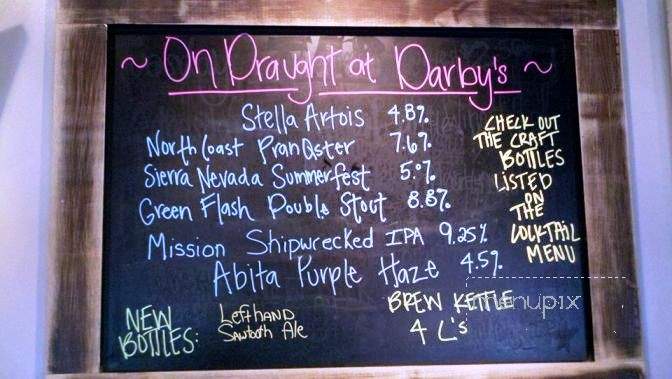 ~ On Draught at Darby's ~
Stella Artois 4.8%
North Coast PranQster 7.6%
Sierra Nevada Summerfest 5.0%
Green Flash Double Stout 8.8%
Mission Shipwrecked IPA 9.25%
Abita Purple Haze 4.5%
CHECK OUT
THE CRAFT
BOTTLES
LISTED
ON
THE
COCKTAIL
MENU
NEW
BOTTLES:
LEFTHAND
SAWTOOTH Ale
BREW KETTLE
4 L's
menupix